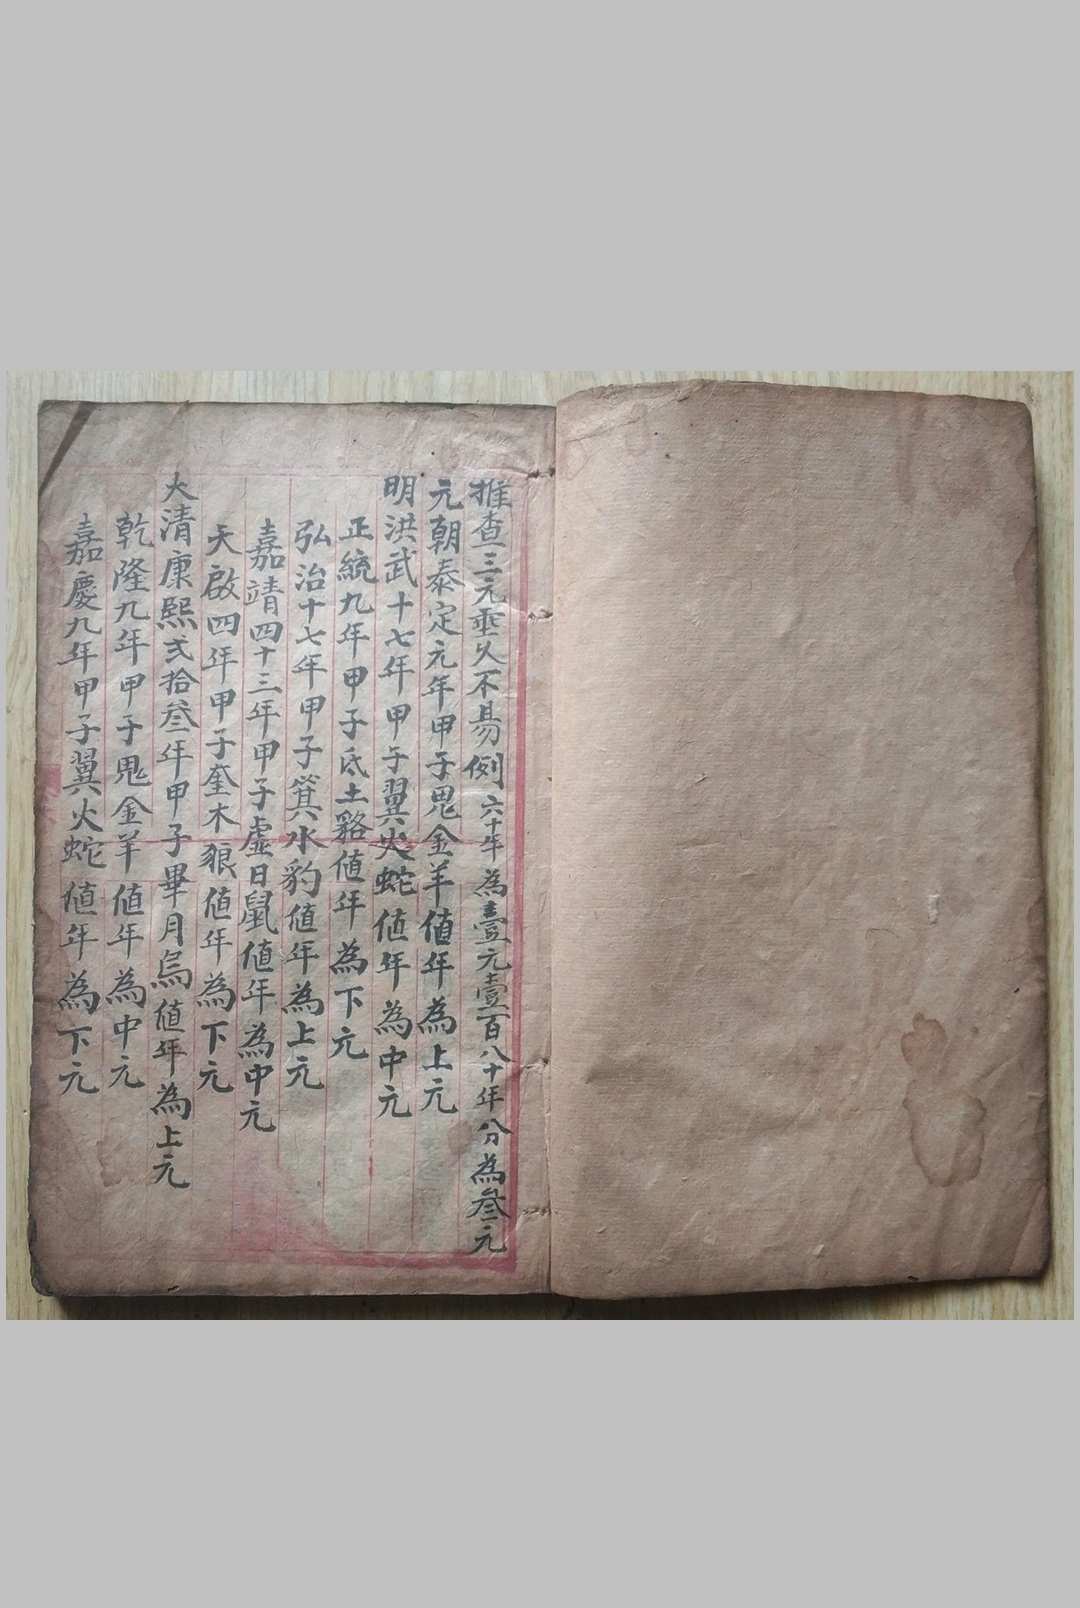 推查三元垂久不易例 六十年為壹元壹百八十年分為叄元
元朝泰定元年甲子鬼金羊値年為上元
明洪武十七年甲子翼火蛇値年為中元
正統九年甲子氐土貉値年為下元
弘治十七年甲子箕水豹値年為上元
嘉靖四十三年甲子虛日鼠値年為中元
天啟四年甲子奎木狼値年為下元
大清康熙弍拾叄年甲子畢月烏値年為上元
乾隆九年甲子鬼金羊値年為中元
嘉慶九年甲子翼火蛇値年為下元